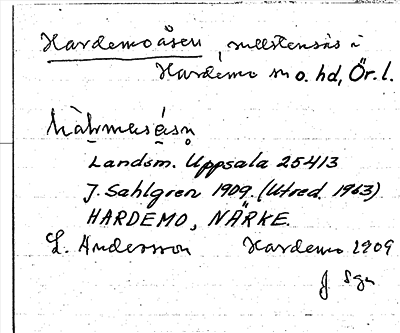 Hardemoåsen, rullstensås i
Hardemo sn o. hd, Ör. l.
Landsm. Uppsala 25413
J. Sahlgren 1909. (Utred. 1963)
HARDEMO, NÄRKE.
L. Andersson Hardemo 1909
J Sgn